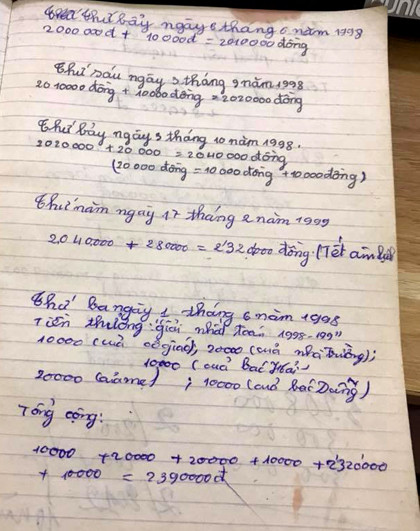 Thứ bảy ngày 6 tháng 6 năm 1998
2000.000đ + 10000đ = 2010000 đồng
Thứ sáu ngày 3 tháng 9 năm 1998
2010000 đồng + 10000 đồng = 2020000 đồng
Thứ bảy ngày 3 tháng 10 năm 1998.
2020000 + 20.000 = 2040000 đồng
(20000 đồng = 10.000 đồng + 10000 đồng)
Thứ năm ngày 17 tháng 2 năm 1999
2040000 + 280000 = 2320000 đồng. (Tết âm lịch
Thứ ba ngày 1 tháng 6 năm 1998
Tiền thưởng "giải nhất toán 1998-199"
10000 (của cô giáo), 20000 (của nhà trường);
10000 (của bác Hải)
20000 (của mẹ) ; 10000 (của bác Dũng)
Tổng cộng:
10000 + 20000 + 20000 + 10000 + 2320000
+ 10000 = 2390000đ